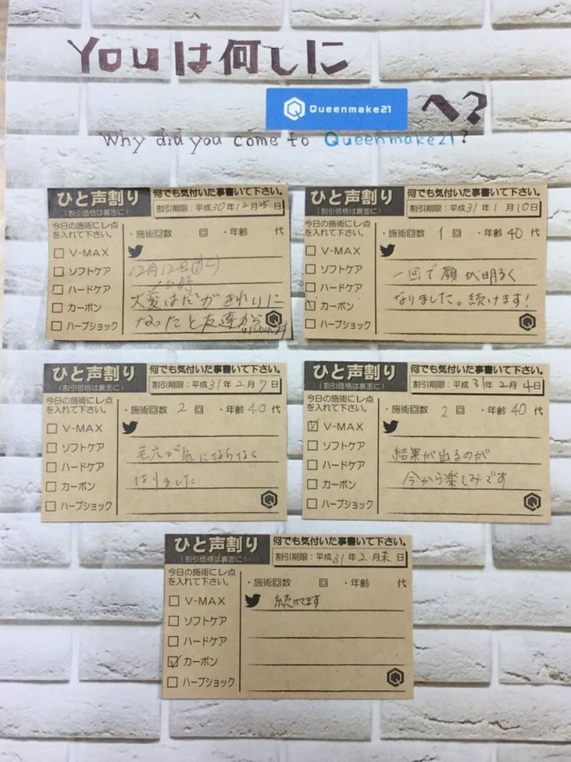 Youは何しに
Queenmake21 へ?
Why did you come to Queenmake21?
ひと声割り
(割引価格は裏面に)
何でも気付いた事書いて下さい。
割引期限:平成30年12月25日
今日の施術にレ点を入れて下さい。
・施術回数 回 ・年齢 代
V-MAX
ソフトケア
ハードケア
カーボン
ハーブショック
12月12日
大変はだがきれいに
なったと友達から
ひと声割り
(割引価格は裏面に)
何でも気付いた事書いて下さい。
割引期限:平成31年1月10日
今日の施術にレ点を入れて下さい。
・施術回数 1 回 ・年齢 40 代
V-MAX
ソフトケア
ハードケア
カーボン
ハーブショック
一回で顔が明るく
なりました。続けます!
ひと声割り
(割引価格は裏面に)
何でも気付いた事書いて下さい。
割引期限:平成31年2月7日
今日の施術にレ点を入れて下さい。
・施術回数 2 回 ・年齢 40 代
V-MAX
ソフトケア
ハードケア
カーボン
ハーブショック
毛穴が気にならなく
なりました
ひと声割り
(割引価格は裏面に)
何でも気付いた事書いて下さい。
割引期限:平成31年2月4日
今日の施術にレ点を入れて下さい。
・施術回数 2 回 ・年齢 40 代
V-MAX
ソフトケア
ハードケア
カーボン
ハーブショック
結果が出るのが
今から楽しみです
ひと声割り
(割引価格は裏面に)
何でも気付いた事書いて下さい。
割引期限:平成31年2月末日
今日の施術にレ点を入れて下さい。
・施術回数 回 ・年齢 代
V-MAX
ソフトケア
ハードケア
カーボン
ハーブショック
続けてます